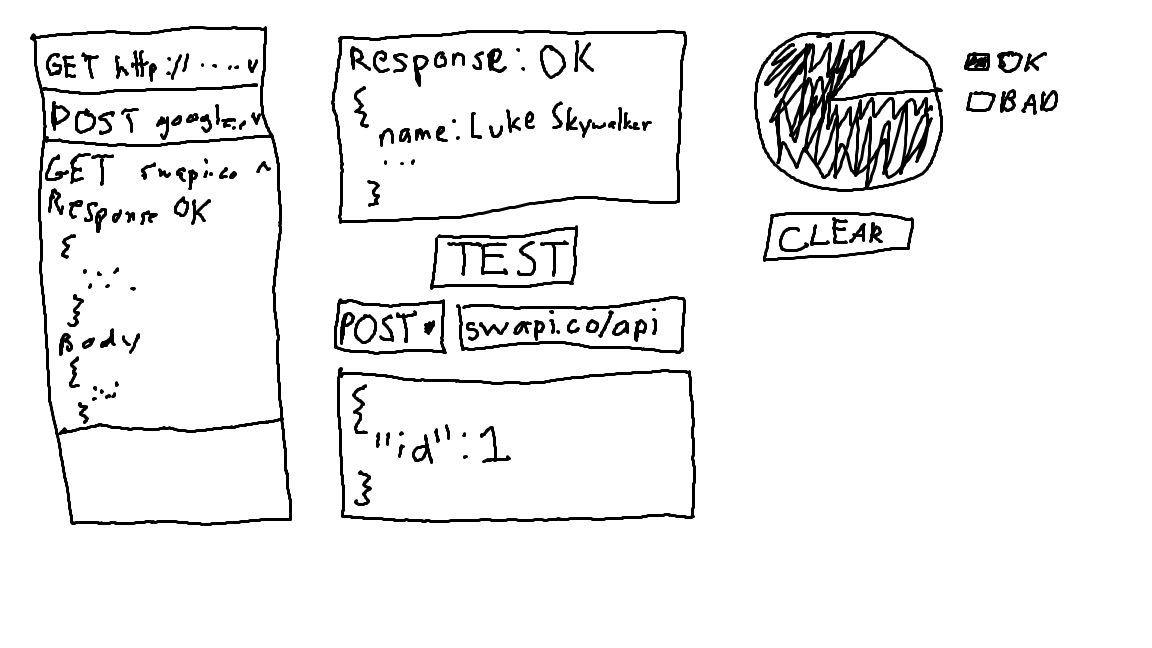 GET http://.... v
POST google... v
GET swapi.co ^
Response OK
{
.....
}
Body
{
....
}
Response: OK
{
name: Luke Skywalker
...
}
TEST
POST
swapi.co/api
{
"id": 1
}
OK
BAD
CLEAR